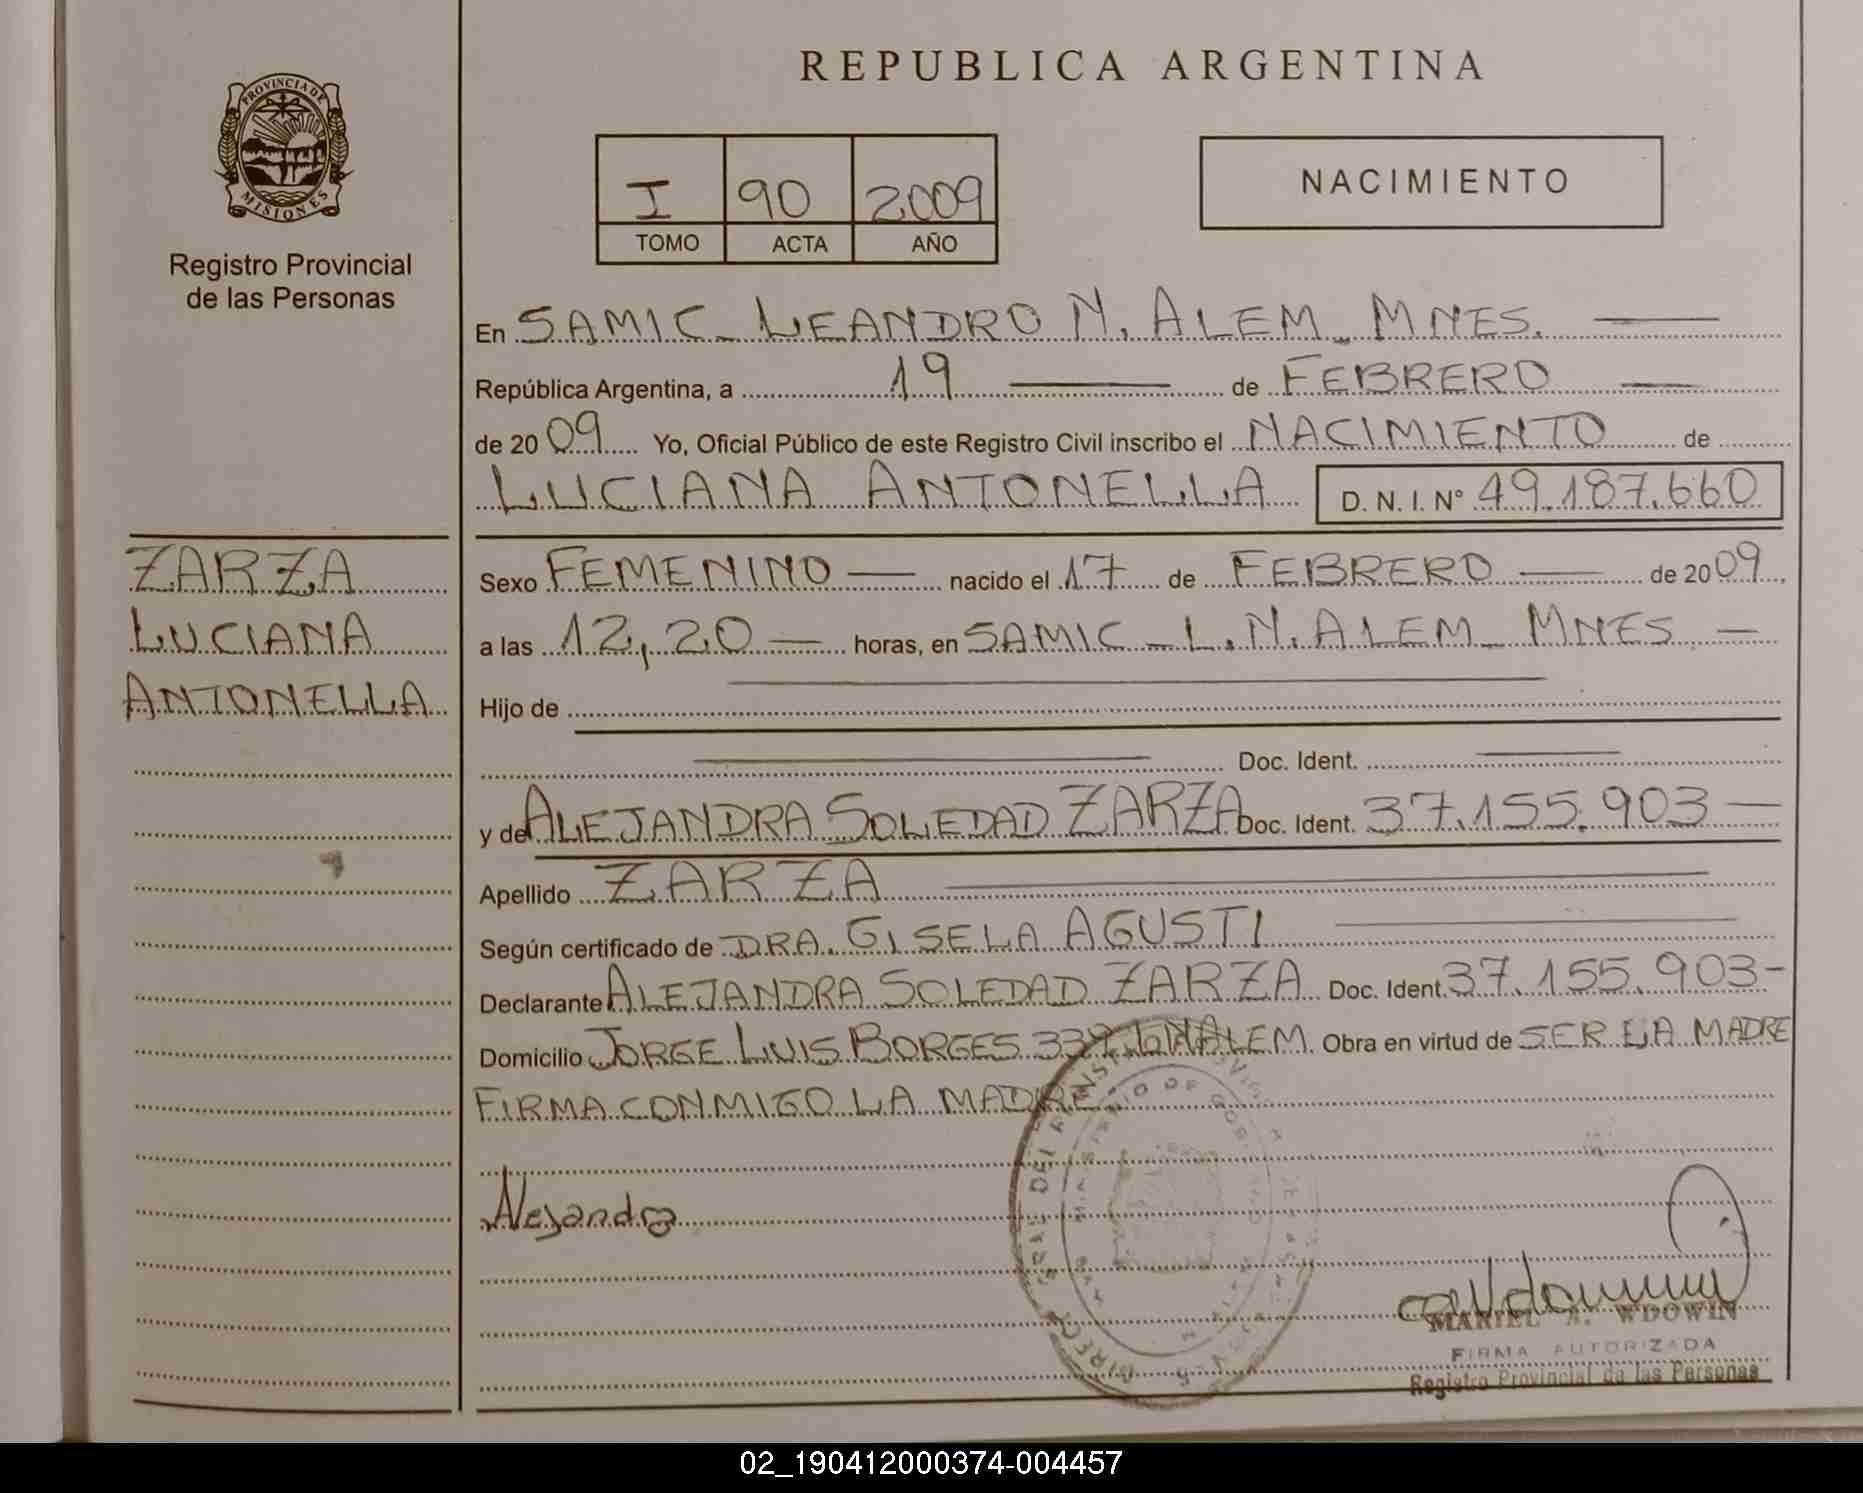 PROVINCIA DE
MISIONES
Registro Provincial
de las Personas
REPUBLICA ARGENTINA
I 90 2009
TOMO ACTA AÑO
NACIMIENTO
En SAMIC - LEANDRO N. ALEM - MNES.
República Argentina, a 19 de FEBRERO
de 2009 Yo, Oficial Público de este Registro Civil inscribo el NACIMIENTO de
LUCIANA ANTONELLA D. N. I. N° 49.187.660
ZARZA
LUCIANA
ANTONELLA
Sexo FEMENINO nacido el 17 de FEBRERO de 2009
a las 12,20 horas, en SAMIC - L. N. ALEM - MNES
Hijo de
Doc. Ident.
y de ALEJANDRA SOLEDAD ZARZA Doc. Ident. 37.155.903
Apellido ZARZA
Según certificado de DRA. GISELA AGUSTI
Declarante ALEJANDRA SOLEDAD ZARZA Doc. Ident. 37.155.903-
Domicilio JORGE LUIS BORGES ALEM. Obra en virtud de SER LA MADRE
FIRMA CONMIGO LA MADRE
Alejandra
MARIEL A. WDOWIN
FIRMA AUTORIZADA
Registro Provincial de las Personas
02_190412000374-004457